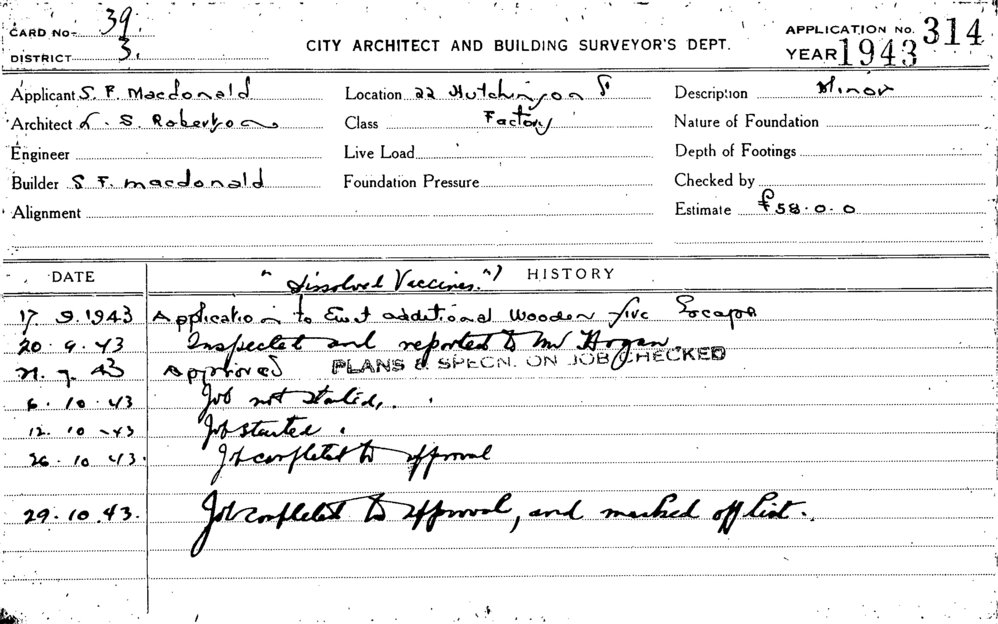 CARD No- 39.
DISTRICT 3.
CITY ARCHITECT AND BUILDING SURVEYOR'S DEPT.
APPLICATION No. 314
YEAR 1943
Applicant S. F. Macdonald
Location 22 Hutchinson St
Description Minor
Architect L. S. Robertson
Class Factory
Nature of Foundation
Engineer
Live Load
Depth of Footings
Builder S F. Macdonald
Foundation Pressure
Checked by
Alignment
Estimate £58.0.0
DATE
HISTORY
"Dissolved Vaccines."
17 9.1943 Application to Erect additional wooden fire Escape
20.9.43 Inspected and reported to Mr Hogan.
PLANS & SPECN. ON JOB CHECKED
43 Approved
6.10.43 Job not started.
12.10-43 Job started.
26.10.43. Job completed to approval
29.10.43. Job completed to approval, and marked off list.